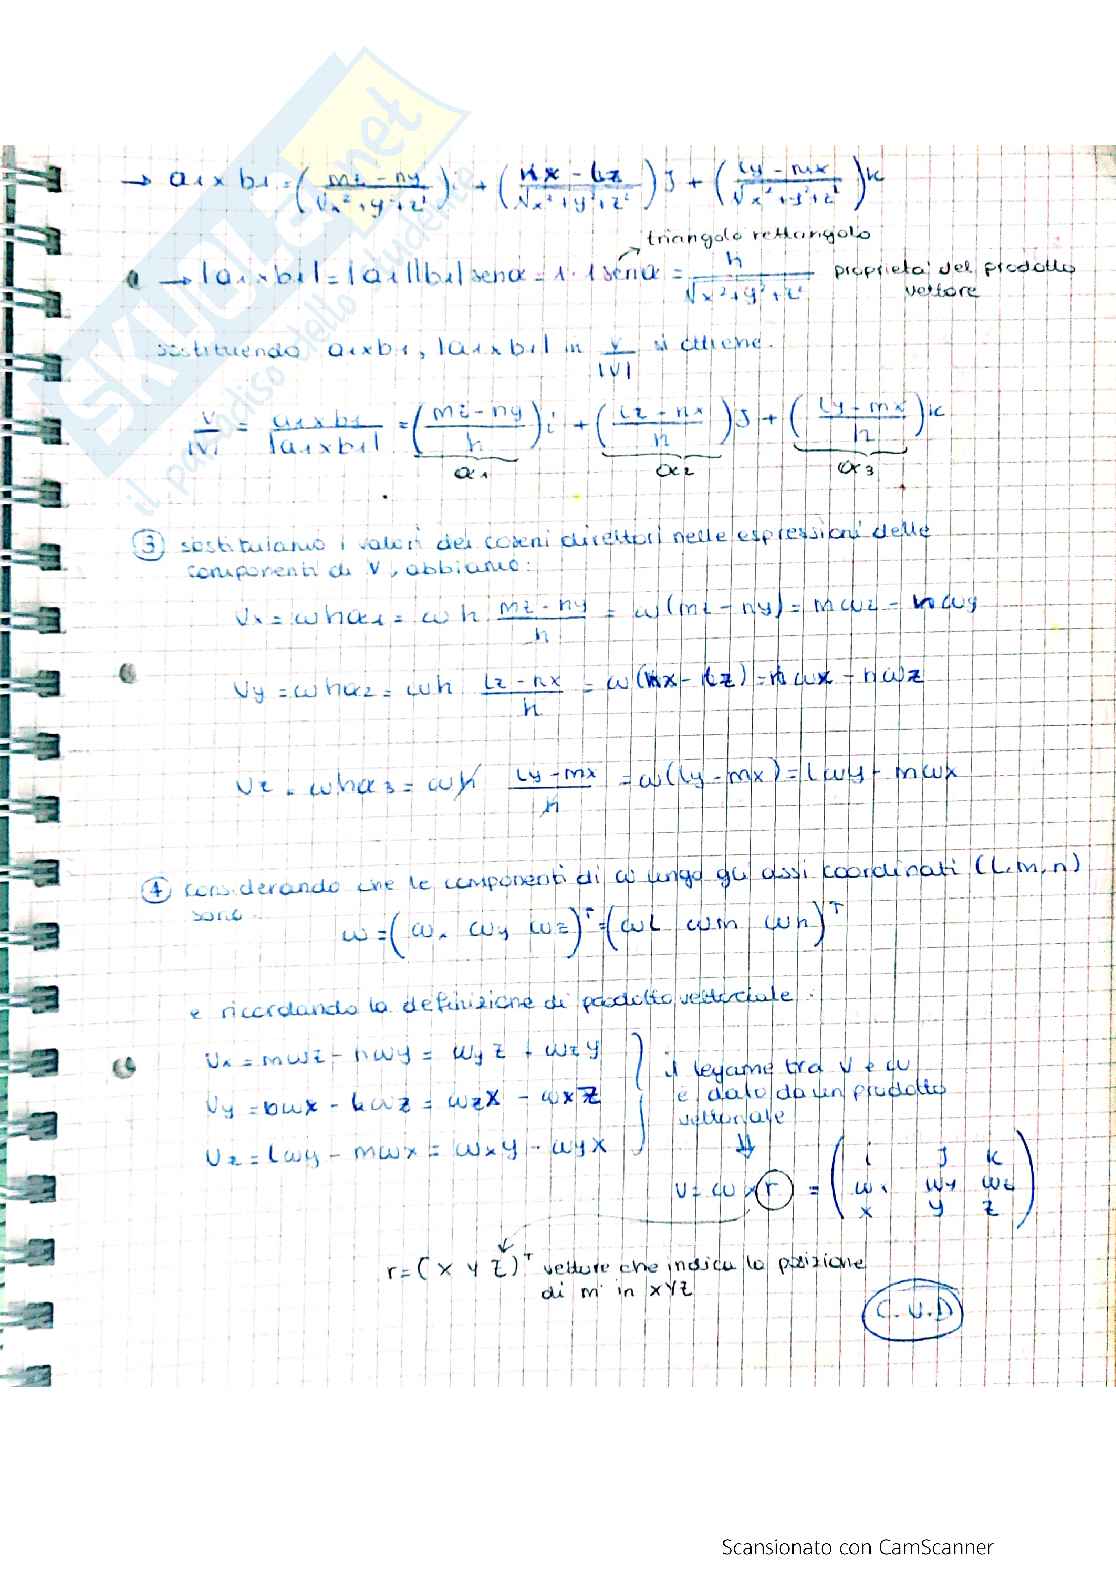 → a₁ × b₁ = ( (mz - ny) / √x²+y²+z² ) i + ( (nx - lz) / √x²+y²+z² ) J + ( (ly - mx) / √x²+y²+z² ) k
triangolo rettangolo
→ |a₁ × b₁| = |a₁||b₁| sen α = 1 · 1 sen α = h / √x²+y²+z² proprietà del prodotto
vettore
sostituendo a₁×b₁, |a₁×b₁| in v/|v| si ottiene.
v/|v| = a₁×b₁ / |a₁×b₁| = ( (mz - ny) / h ) i + ( (lz - nx) / h ) J + ( (ly - mx) / h ) k
α₁ α₂ α₃
③ sostituiamo i valori dei coseni direttori nelle espressioni delle
componenti di V, abbiamo:
Vx = ωhα₁ = ωh (mz - ny)/h = ω(mz - ny) = mωz - nωy
Vy = ωhα₂ = ωh (lz - nx)/h = ω(nx - lz) = nωx - nωz
Vz = ωhα₃ = ωh (ly - mx)/h = ω(ly - mx) = lωy - mωx
④ considerando che le componenti di ω lungo gli assi coordinati (l, m, n)
sono
ω = (ωx ωy ωz)ᵀ = (ωl ωm ωn)ᵀ
e ricordando la definizione di prodotto vettoriale:
Vx = mωz - nωy = ωyz + ωzy
Vy = nωx - lωz = ωzx - ωxz
Vz = lωy - mωx = ωxy - ωyx
il legame tra V e ω
è dato da un prodotto
vettoriale
⇓
V = ω × r = ( i J k
ωx ωy ωz
x y z )
r = (x y z)ᵀ vettore che indica la posizione
di m in XYZ
C.V.D
SKUOLA.net
il paradiso dello studente
Scansionato con CamScanner